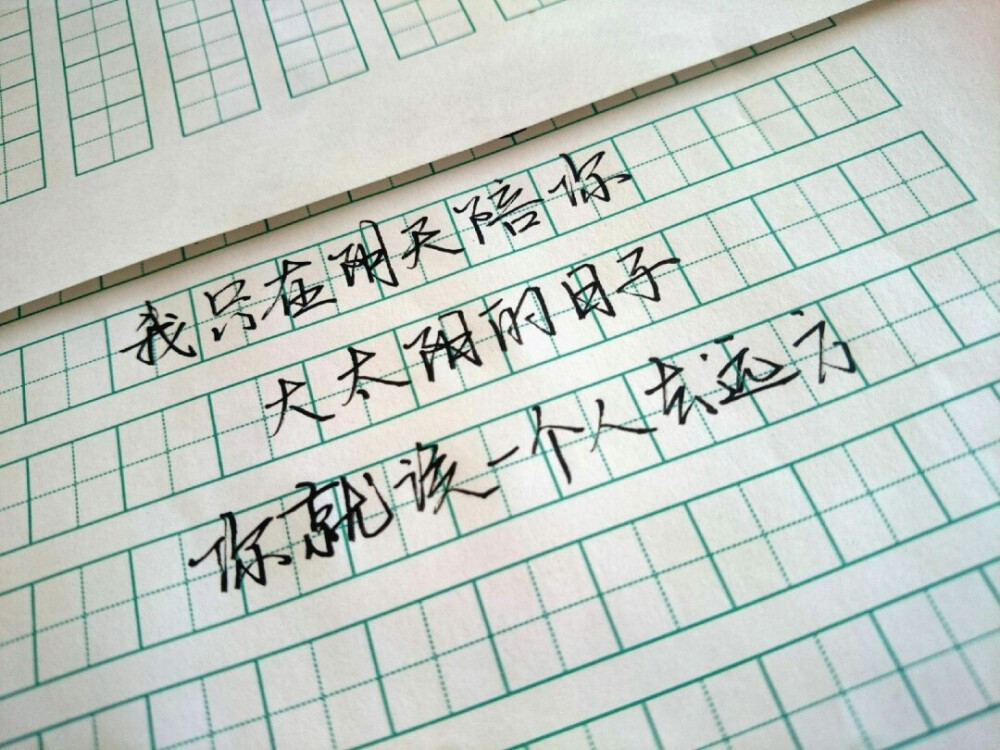 我只在阴天陪你
大太阳的日子
你就该一个人去远方